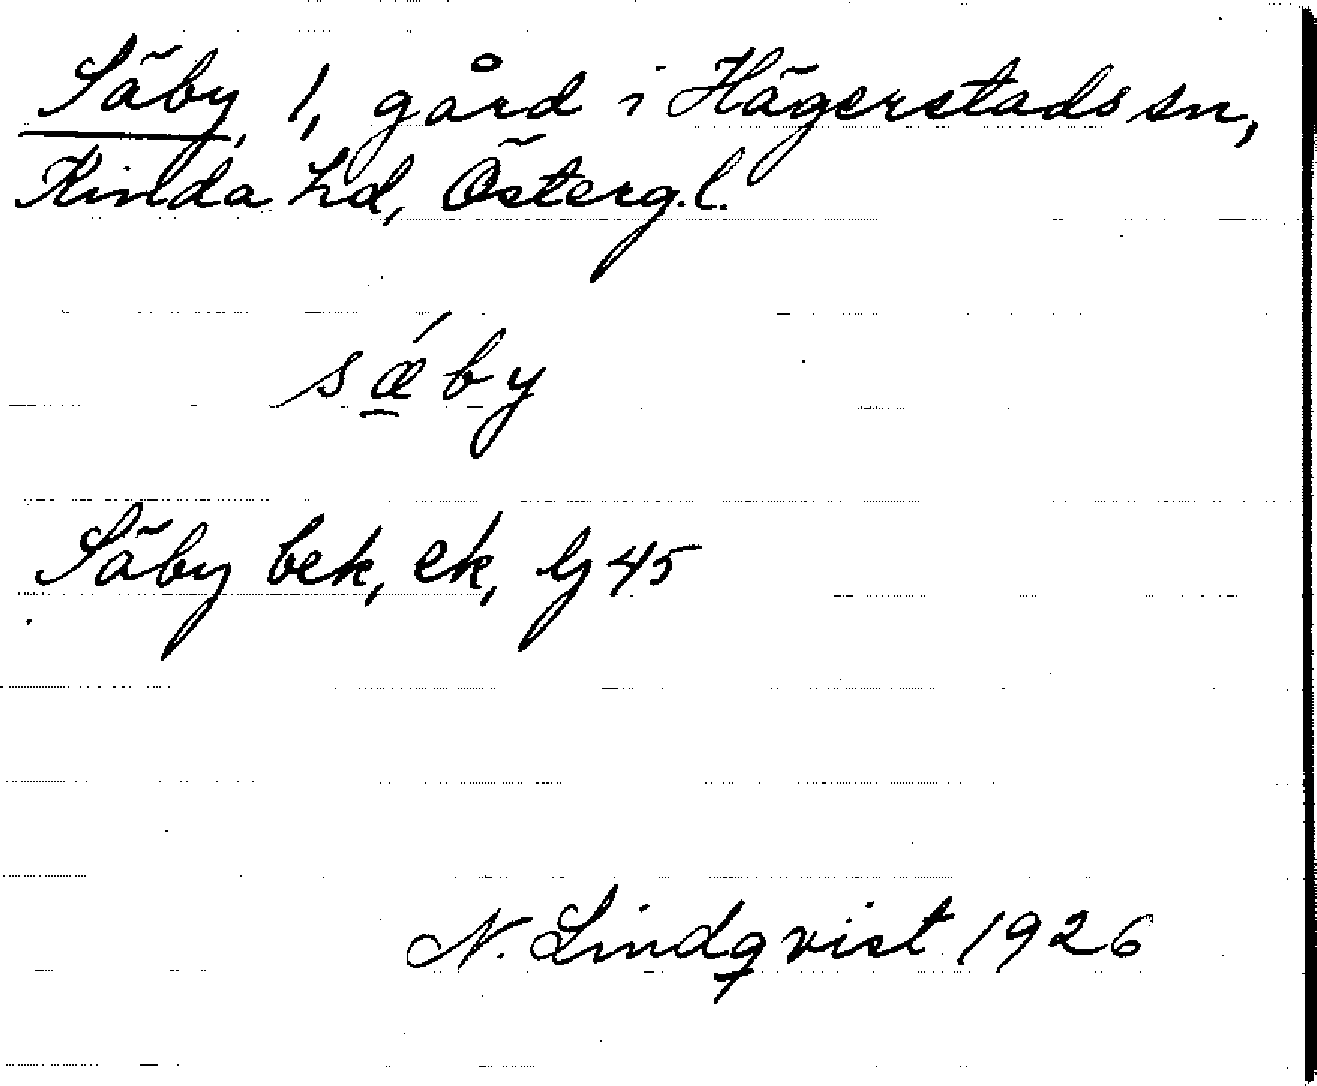 Säby, 1, gård i Hägerstads sn,
Kinda hd, Österg.l.
sǽby
Säby bek, ek, lj 45
N. Lindqvist 1926